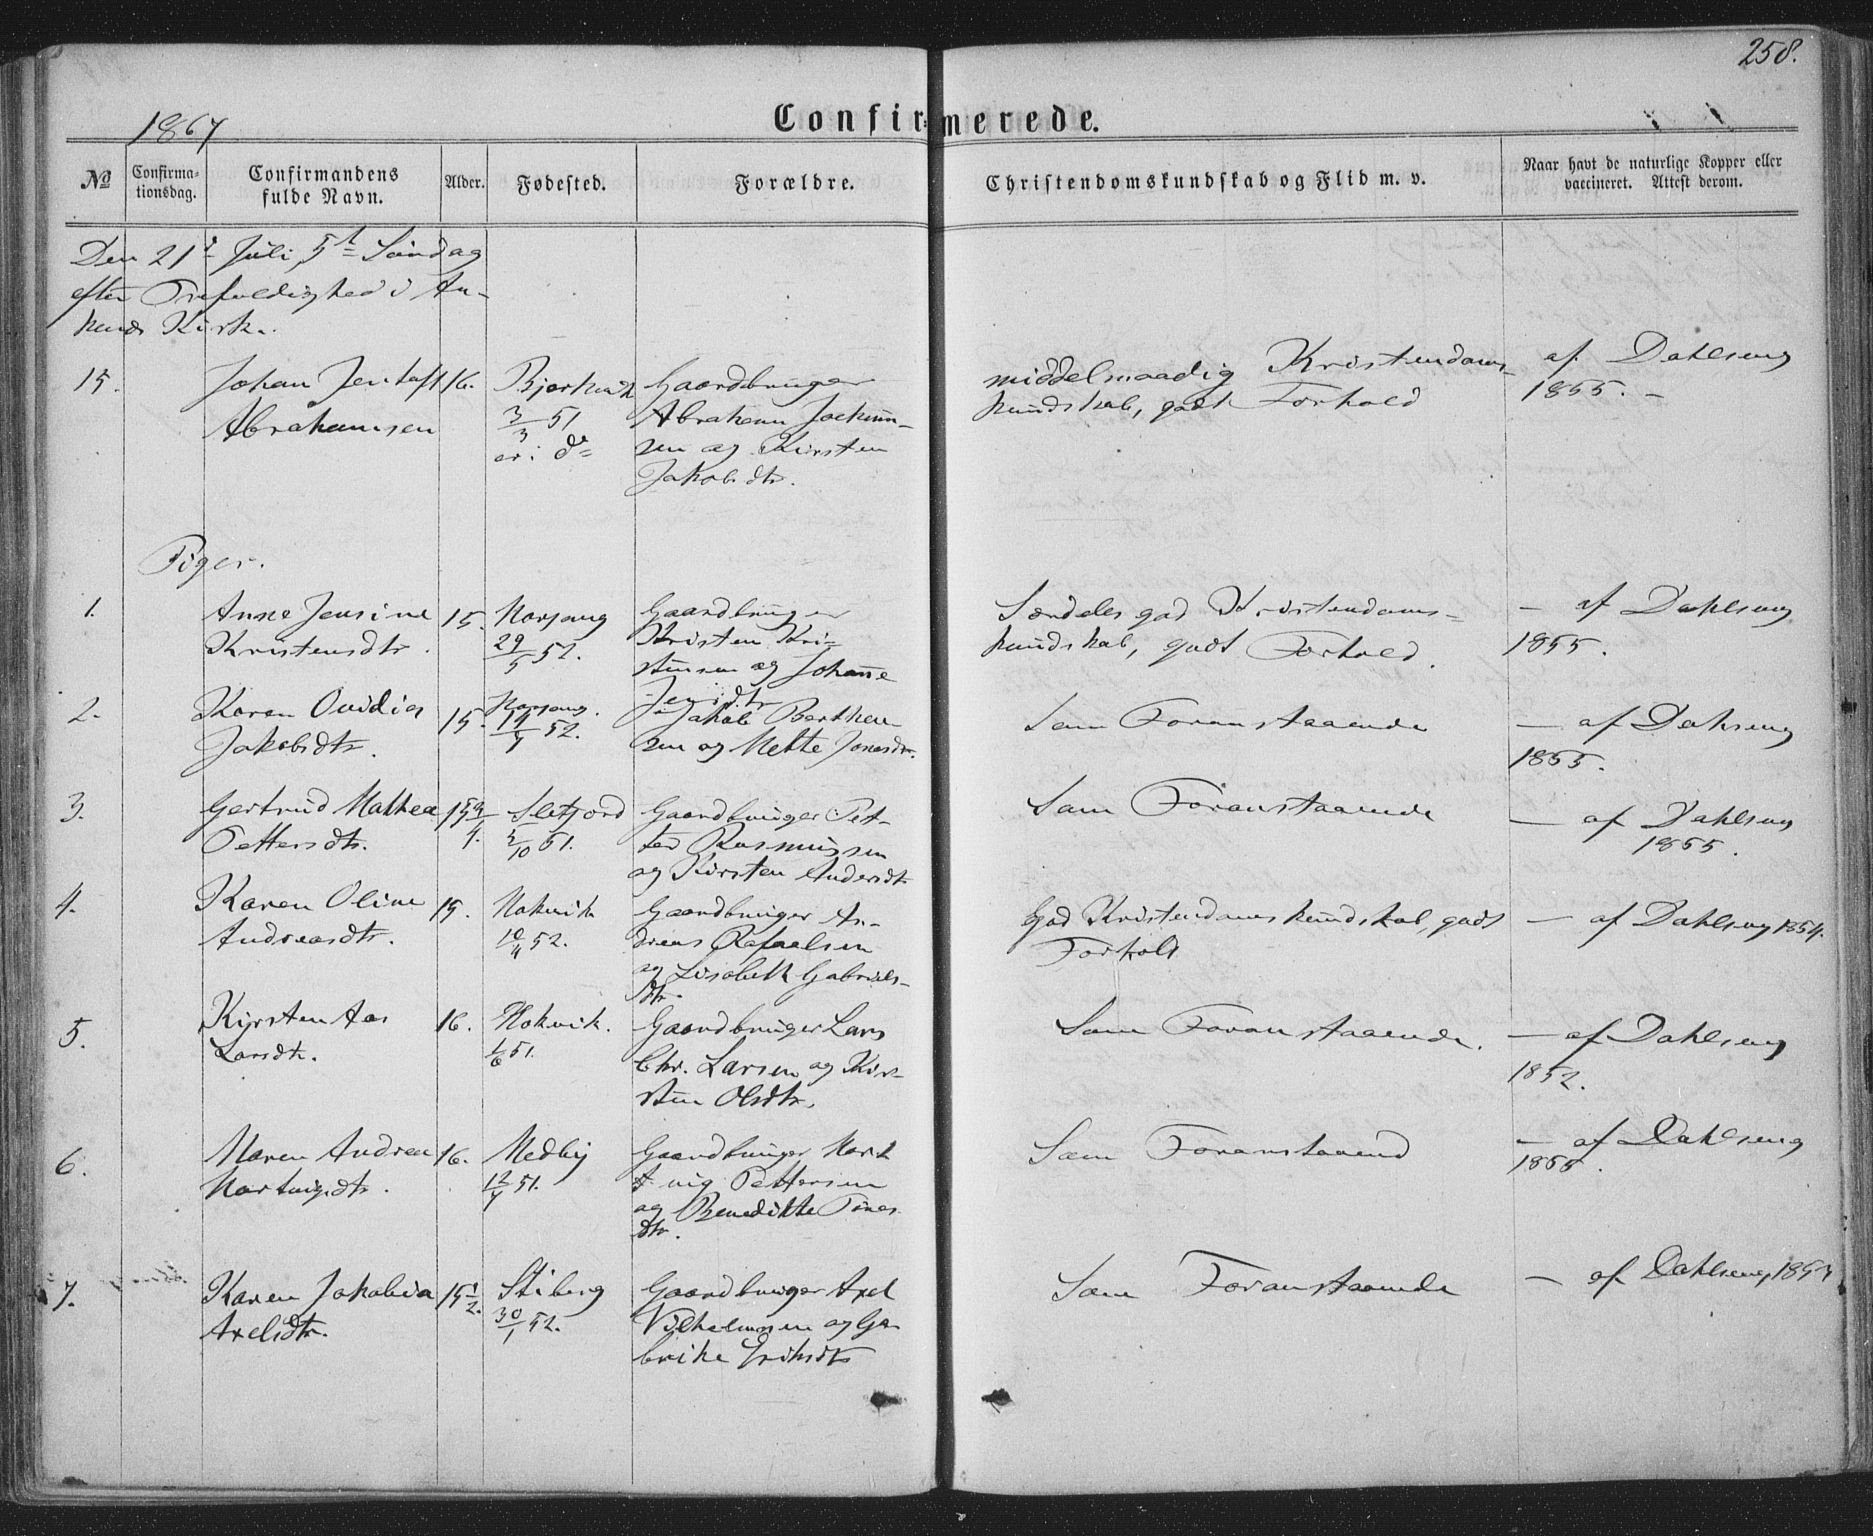 258.
Confirmerede.
1867
No
Confirma-
tionsdag.
Confirmandens
fulde Navn.
Alder.
Fødested.
Forældre.
Christendomskundskab og Flid m. v.
Naar havt de naturlige Kopper eller
vaccineret. Attest derom.
Den 21de Juli 5te Søndag
efter Trefoldighed i An-
kenes Kirke.
15.
Johan Jentoft
Abrahamsen
16.
Bjerkvik
3/3 51
Gaardbruger
Abraham Jochum-
sen og Kirsten
Jakobsdtr.
middelmaadig Kristendoms-
kundskab, godt Forhold
af Dahlseng
1855. -
Piger.
1.
Anne Jensine
Kristensdtr.
15.
29/5 52.
Gaardbruger
Kristen Kri-
stensen og Johanne
Jensdtr
Særdeles god Kristendoms-
kundskab, godt Forhold.
- af Dahlseng
1855.
2.
Karen Ovidia
Jakobsdtr.
15.
52.
Jakob Berthen-
sen og Mette Jonasdtr.
Som Foranstaaende
- af Dahlseng
1855.
3.
Gertrud Mathea
Pettersdtr.
15 3/4.
Sletjord
51.
Gaardbruger Pet-
ter Rasmussen
og Kirsten Andersdtr
Som Foranstaaende
- af Dahlseng
1855.
4.
Karen Oline
Andreasdtr.
15.
Hokvik
10/4 52.
Gaardbruger An-
dreas Rafaelsen
og Lisabeth Gabriels-
dtr.
God Kristendomskundskab, godt
Forhold
- af Dahlseng 1854.
5.
Kirsten Aas
Larsdtr.
16.
Hokvik.
1/6 51.
Gaardbruger Lars
Chr. Larsen og Kir-
sten Olsdtr.
Som Foranstaaende.
- af Dahlseng
1852.
6.
Maren Andrea
Hartvigsdtr.
16.
Medby
12/7 51.
Gaardbruger Hart
tvig Pettersen
og Benedikte Tines
dtr.
Som Foranstaaend
- af Dahlseng
1855.
7.
Karen Jakobea
Axelsdtr.
15 1/2.
Stiberg
30/1 52.
Gaardbruger Axel
Vilhelmsen og Ga-
brike Eriksdtr
Som Foranstaaende
- af Dahlseng 1853